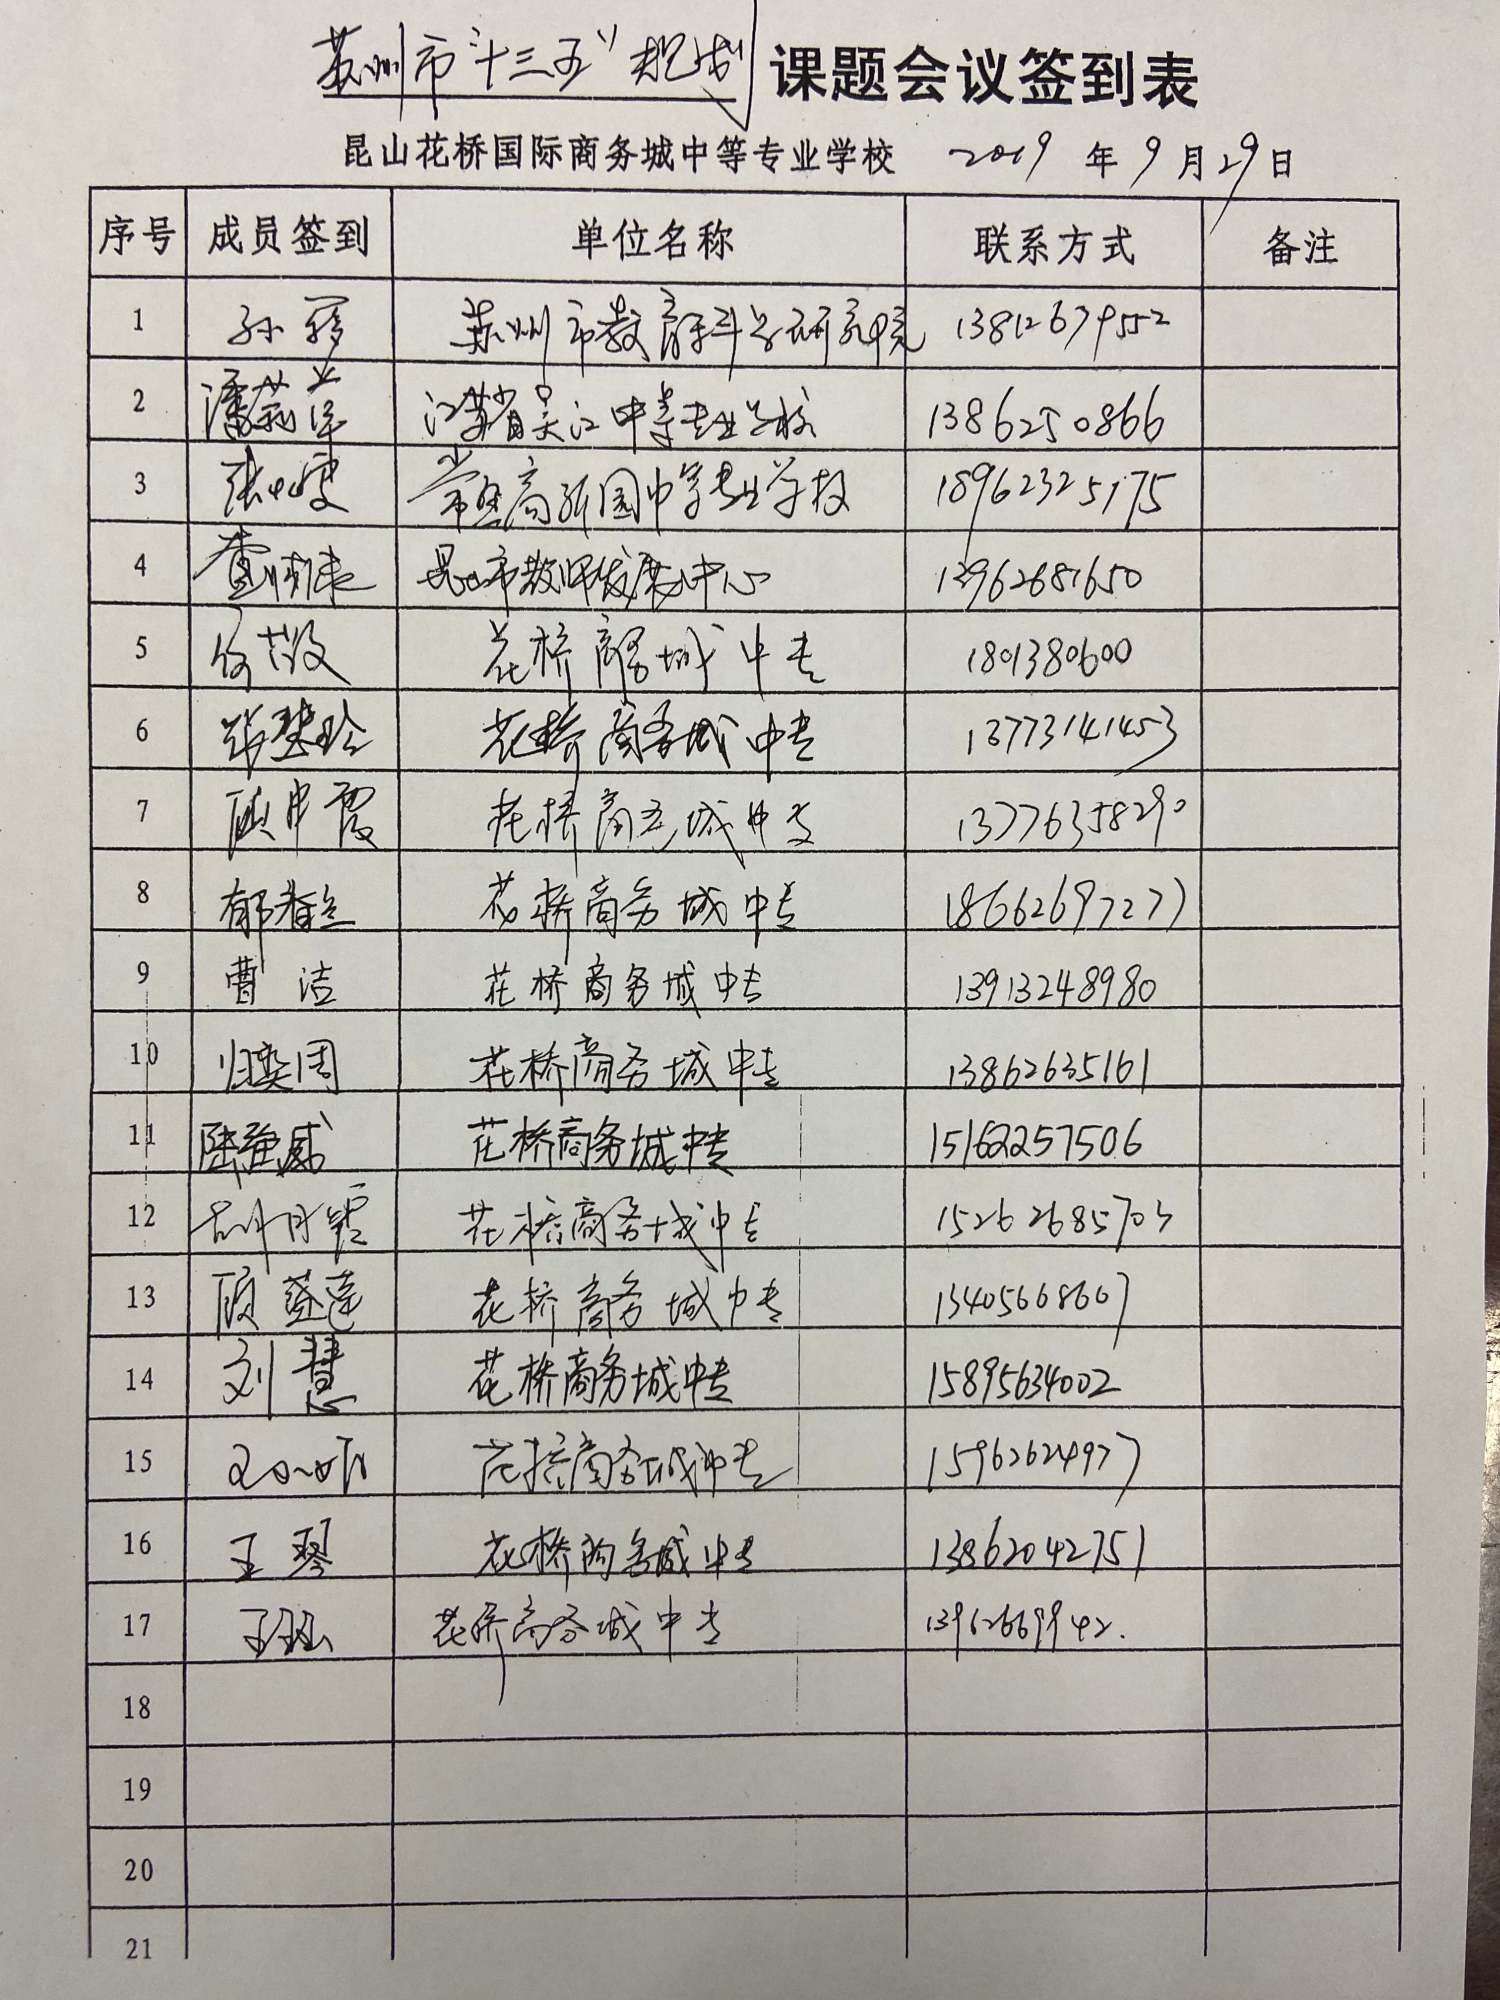 苏州市"十三五"规划课题会议签到表
昆山花桥国际商务城中等专业学校 2019年9月29日
序号 成员签到 单位名称 联系方式 备注
1 孙 苏州市教育科学研究院 13812679552
2 潘莉萍 江苏省吴江中等专业学校 1386250866
3 张 常熟高新园中等专业学校 18962325175
4 昆山市教师发展中心 13962681650
5 花桥商务城中专 1801380600
6 花桥商务城中专 13773141453
7 霞 花桥商务城中专 13776358290
8 郁春兰 花桥商务城中专 18662697277
9 曹洁 花桥商务城中专 13913248980
10 归奕周 花桥商务城中专 13862635161
11 陆雅威 花桥商务城中专 15162257506
12 胡月霞 花桥商务城中专 15262685703
13 顾蓝莲 花桥商务城中专 13405668667
14 刘慧 花桥商务城中专 15895634002
15 花桥商务城中专 15962624977
16 王琴 花桥商务城中专 13862042751
17 花桥商务城中专 13962669942.
18
19
20
21